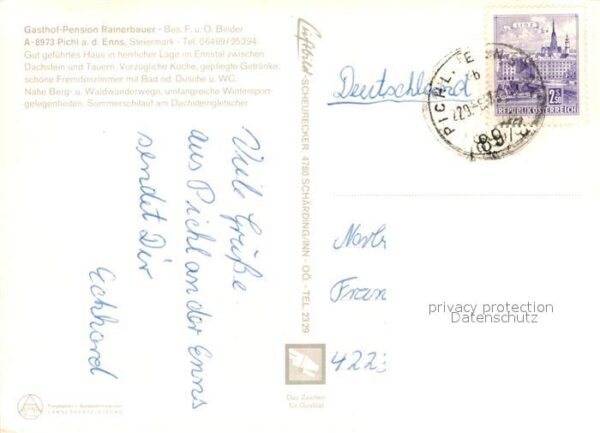 Gasthof-Pension Rainerbauer - Bes. F. u. O. Binder
A-8973 Pichl a. d. Enns, Steiermark - Tel. 06469/25294
Gut geführtes Haus in herrlicher Lage im Ennstal zwischen
Dachstein und Tauern. Vorzügliche Küche, gepflegte Getränke,
schöne Fremdenzimmer mit Bad od. Dusche u. WC.
Nahe Berg- u. Waldwanderwege, umfangreiche Wintersport-
gelegenheiten. Sommerschilauf am Dachsteingletscher
Viele Grüße
aus Pichl an der Enns
sendet Dir
Eckhard
SCHEURECKER, 4780 SCHÄRDING/INN - OÖ. - TEL. 2329
Das Zeichen
für Qualität
LINZ
2.50
REPUBLIK ÖSTERREICH
PICHL
897
Deutschland
Norb
Fran
4223
privacy protection
Datenschutz